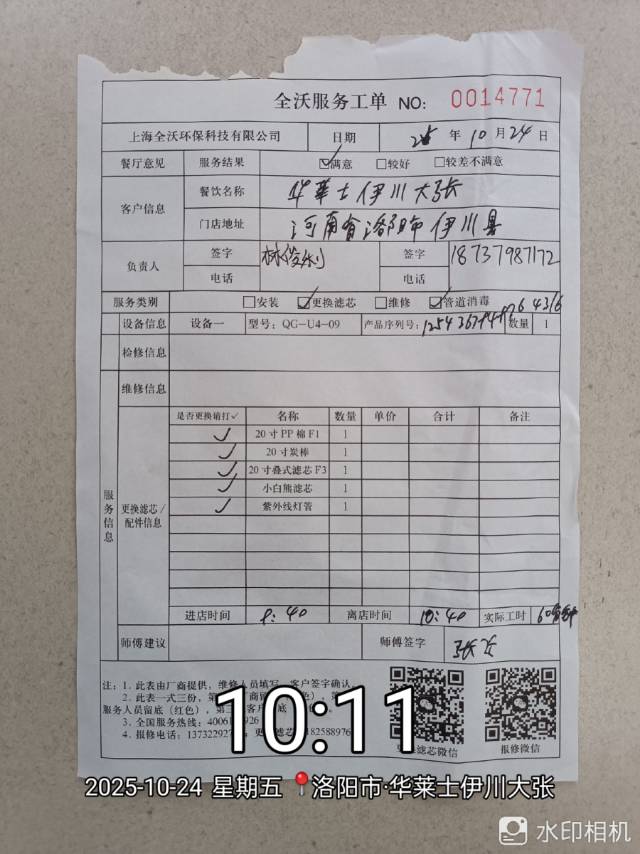 全沃服务工单 NO: 0014771
上海全沃环保科技有限公司 日期 25 年 10 月 24 日
餐厅意见 服务结果 ☑满意 □较好 □较差不满意
客户信息 餐饮名称 华莱士伊川大张
门店地址 河南省洛阳市伊川县
负责人 签字 林俊利 签字 18737987172
电话 电话
服务类别 □安装 ☑更换滤芯 □维修 ☑管道消毒
设备信息 设备一 型号: QG-U4-09 产品序列号: 数量 1
检修信息
维修信息
服务信息
更换滤芯/配件信息
是否更换请打✓ 名称 数量 单价 合计 备注
✓ 20寸PP棉F1 1
✓ 20寸炭棒 1
✓ 20寸叠式滤芯F3 1
✓ 小白熊滤芯 1
✓ 紫外线灯管 1
进店时间 9:40 离店时间 10:40 实际工时 60分钟
师傅建议 师傅签字
注: 1. 此表由厂商提供, 维修人员填写, 客户签字确认。
2. 此表一式三份, 第
服务人员留底(红色), 第三
3. 全国服务热线: 4006
4. 报修电话: 1373229
滤芯微信 报修微信
10:11
2025-10-24 星期五 洛阳市·华莱士伊川大张
水印相机